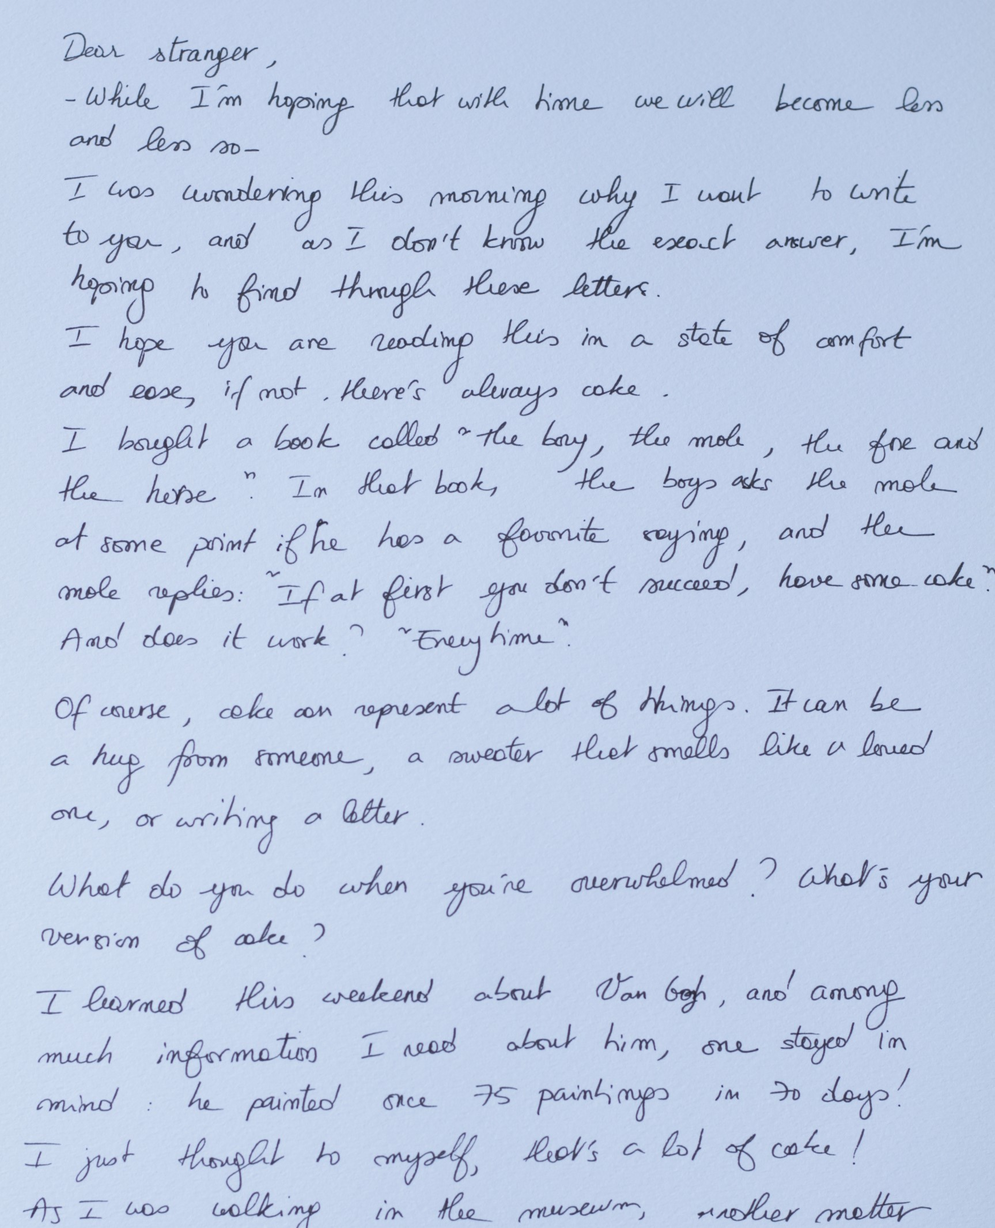 Dear stranger,
- While I'm hoping that with time we will become less
and less so -
I was wondering this morning why I want to write
to you, and as I don't know the exact answer, I'm
hoping to find through these letters.
I hope you are reading this in a state of comfort
and ease, if not. there's always cake.
I bought a book called "the boy, the mole, the fox and
the horse". In that book, the boys asks the mole
at some point if he has a favorite saying, and the
mole replies: "If at first you don't succeed, have some cake".
And does it work? "Every time".
Of course, cake can represent a lot of things. It can be
a hug from someone, a sweater that smells like a loved
one, or writing a letter.
What do you do when you're overwhelmed? What's your
version of cake?
I learned this weekend about Van Gogh, and among
much information I read about him, one stayed in
mind: he painted once 75 paintings in 70 days!
I just thought to myself, that's a lot of cake!
As I was walking in the museum, another matter